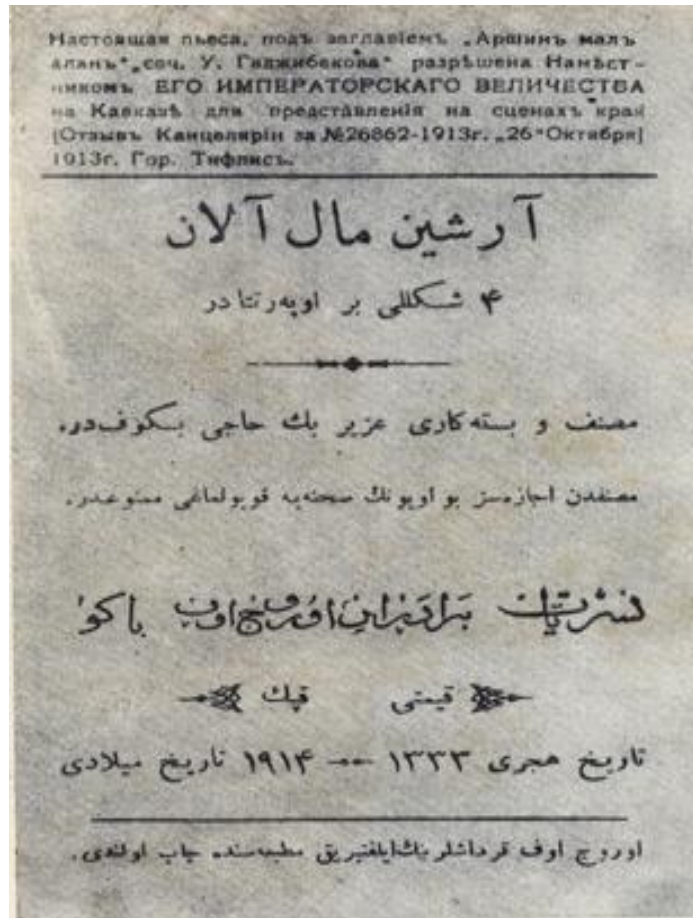 Настоящая пьеса, подъ заглавіемъ „Аршинъ малъ
аланъ“ „соч. У. Гаджибекова“ разрѣшена Намѣст-
никомъ ЕГО ИМПЕРАТОРСКАГО ВЕЛИЧЕСТВА
на Кавказѣ для представленія на сценахъ края
(Отзывъ Канцеляріи за №26862-1913г. „26“ Октября)
1913г. Гор. Тифлисъ.
آرشین مال آلان
۴ شکللی بر اوپهرتتا در
مصنف و بسته‌کاری عزیر بك حاجی بكوف‌در.
مصنفدن اجازه‌سز بو اویونك صحنه‌یه قویولماغی ممنوعدر.
نشریات برادران اوروج‌اوف باکو
قیمتی قپك
تاریخ هجری ۱۳۳۳ -- ۱۹۱۴ تاریخ میلادی
اوروج اوف قرداشلرینك ایلقتیریق مطبعه‌سنده چاپ اولندی.